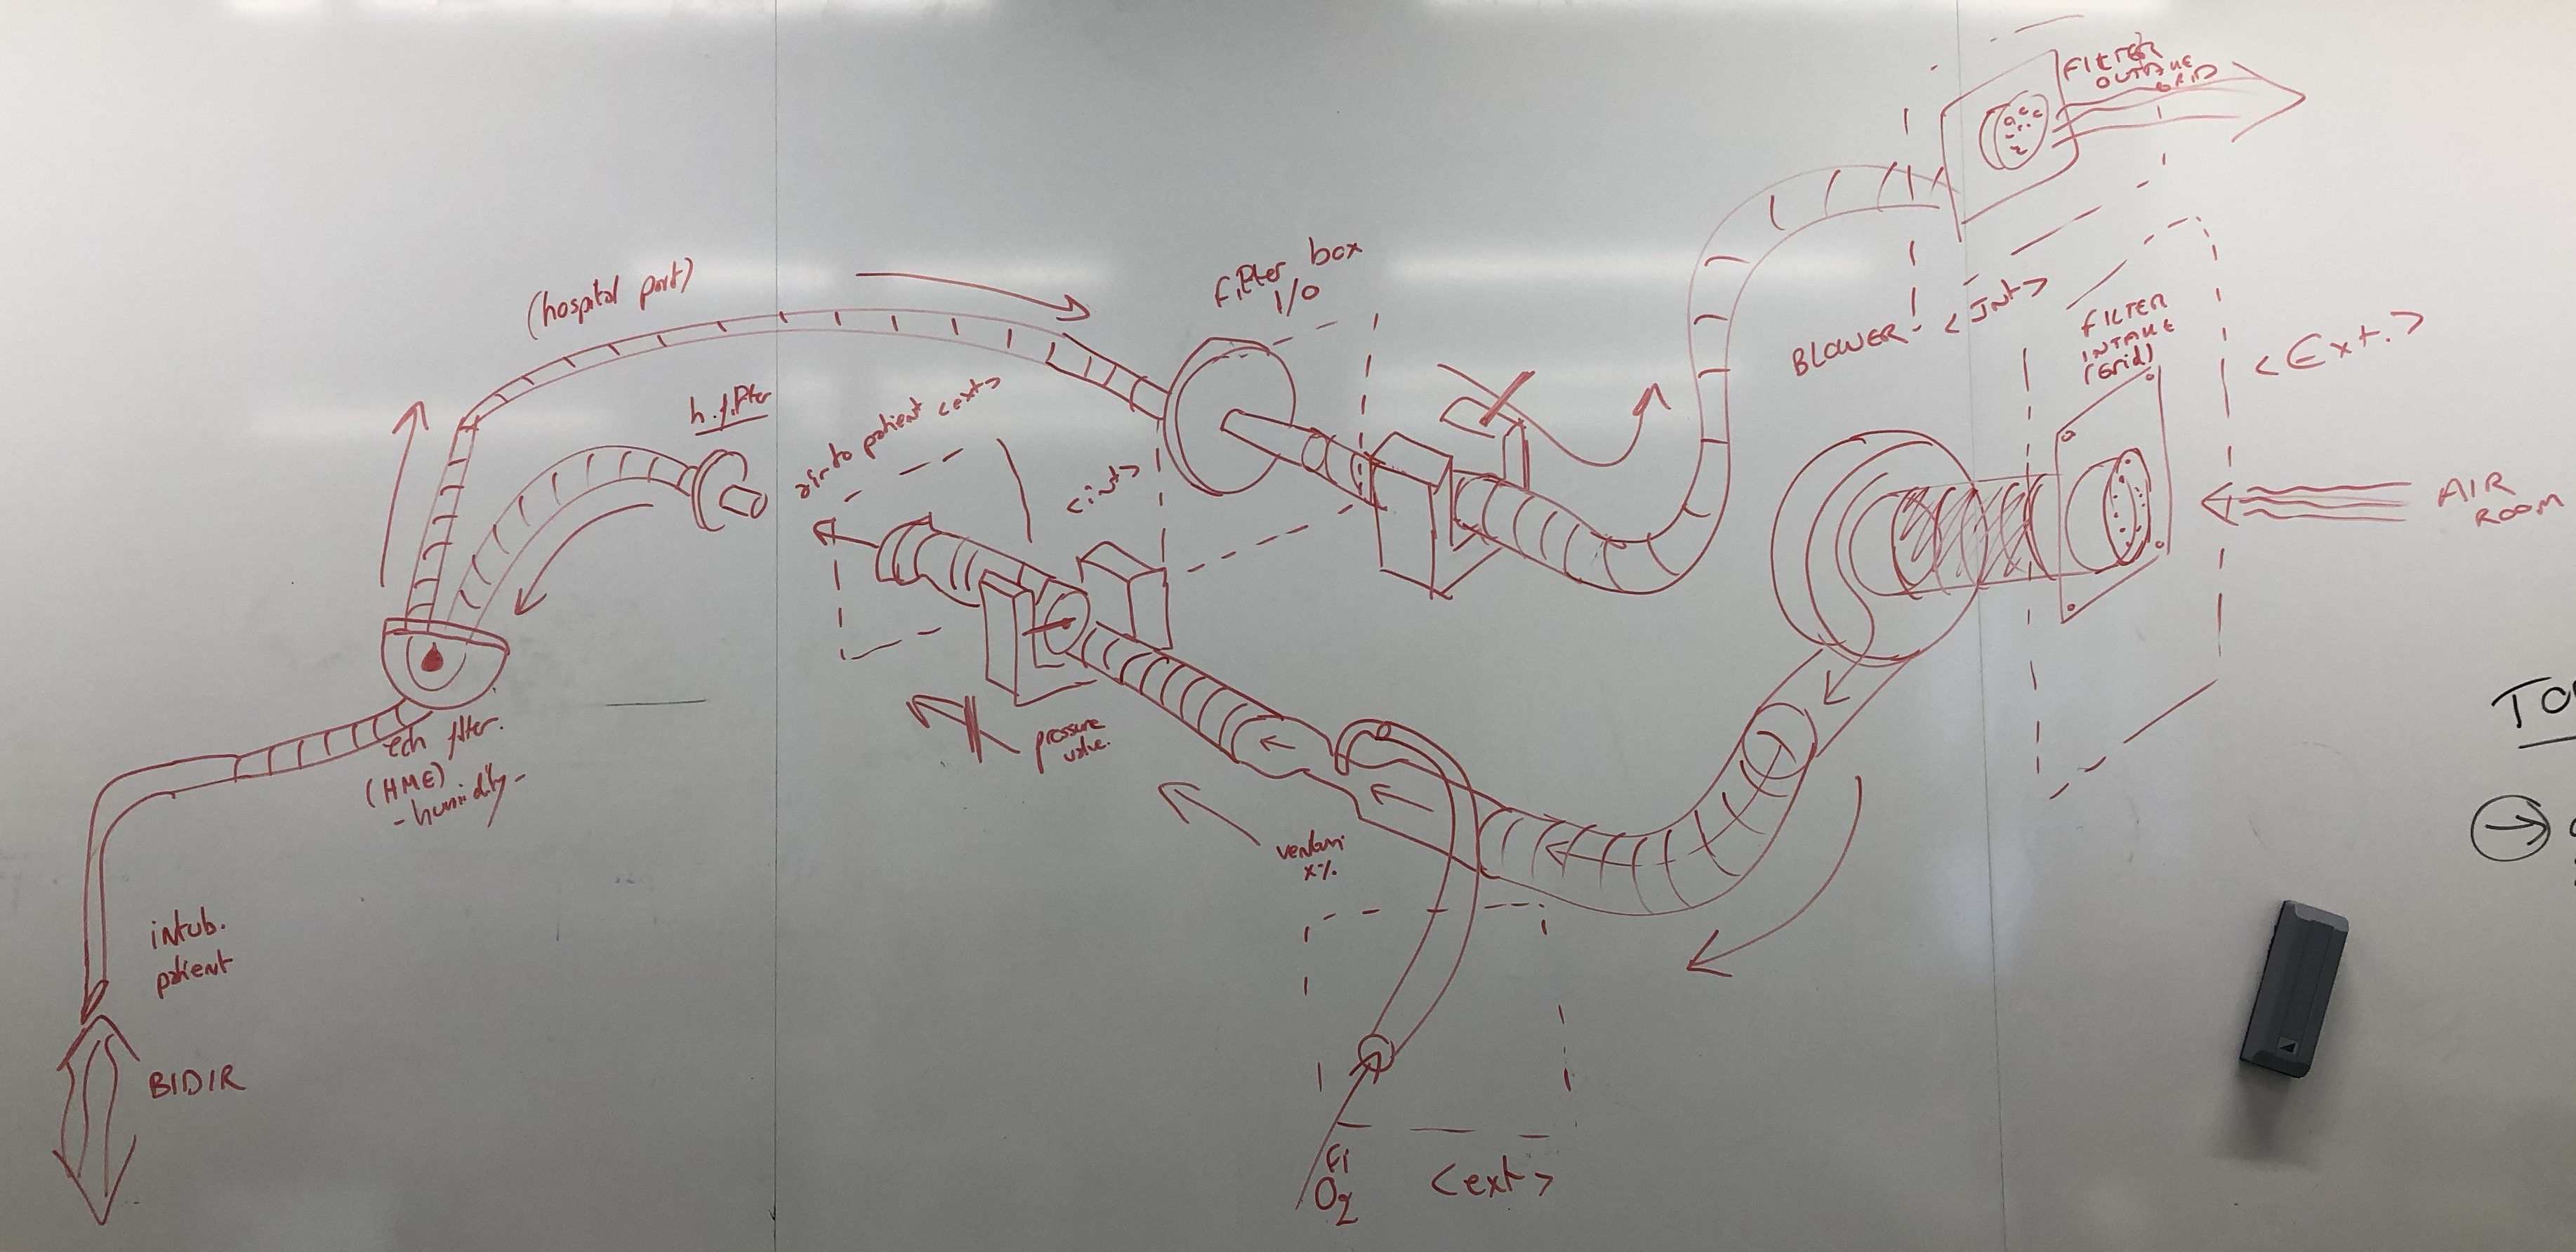 FILTER
OUTTAKE
GRID
(hospital part)
filter box
I/O
BLOWER
<Int>
FILTER
INTAKE
(Grid)
<Ext.>
h. filter
air to patient <ext>
<int>
AIR
ROOM
ech filter.
(HME)
- humidity -
pressure
valve.
venturi
x%
intub.
patient
BIDIR
Fi
O2
<ext>